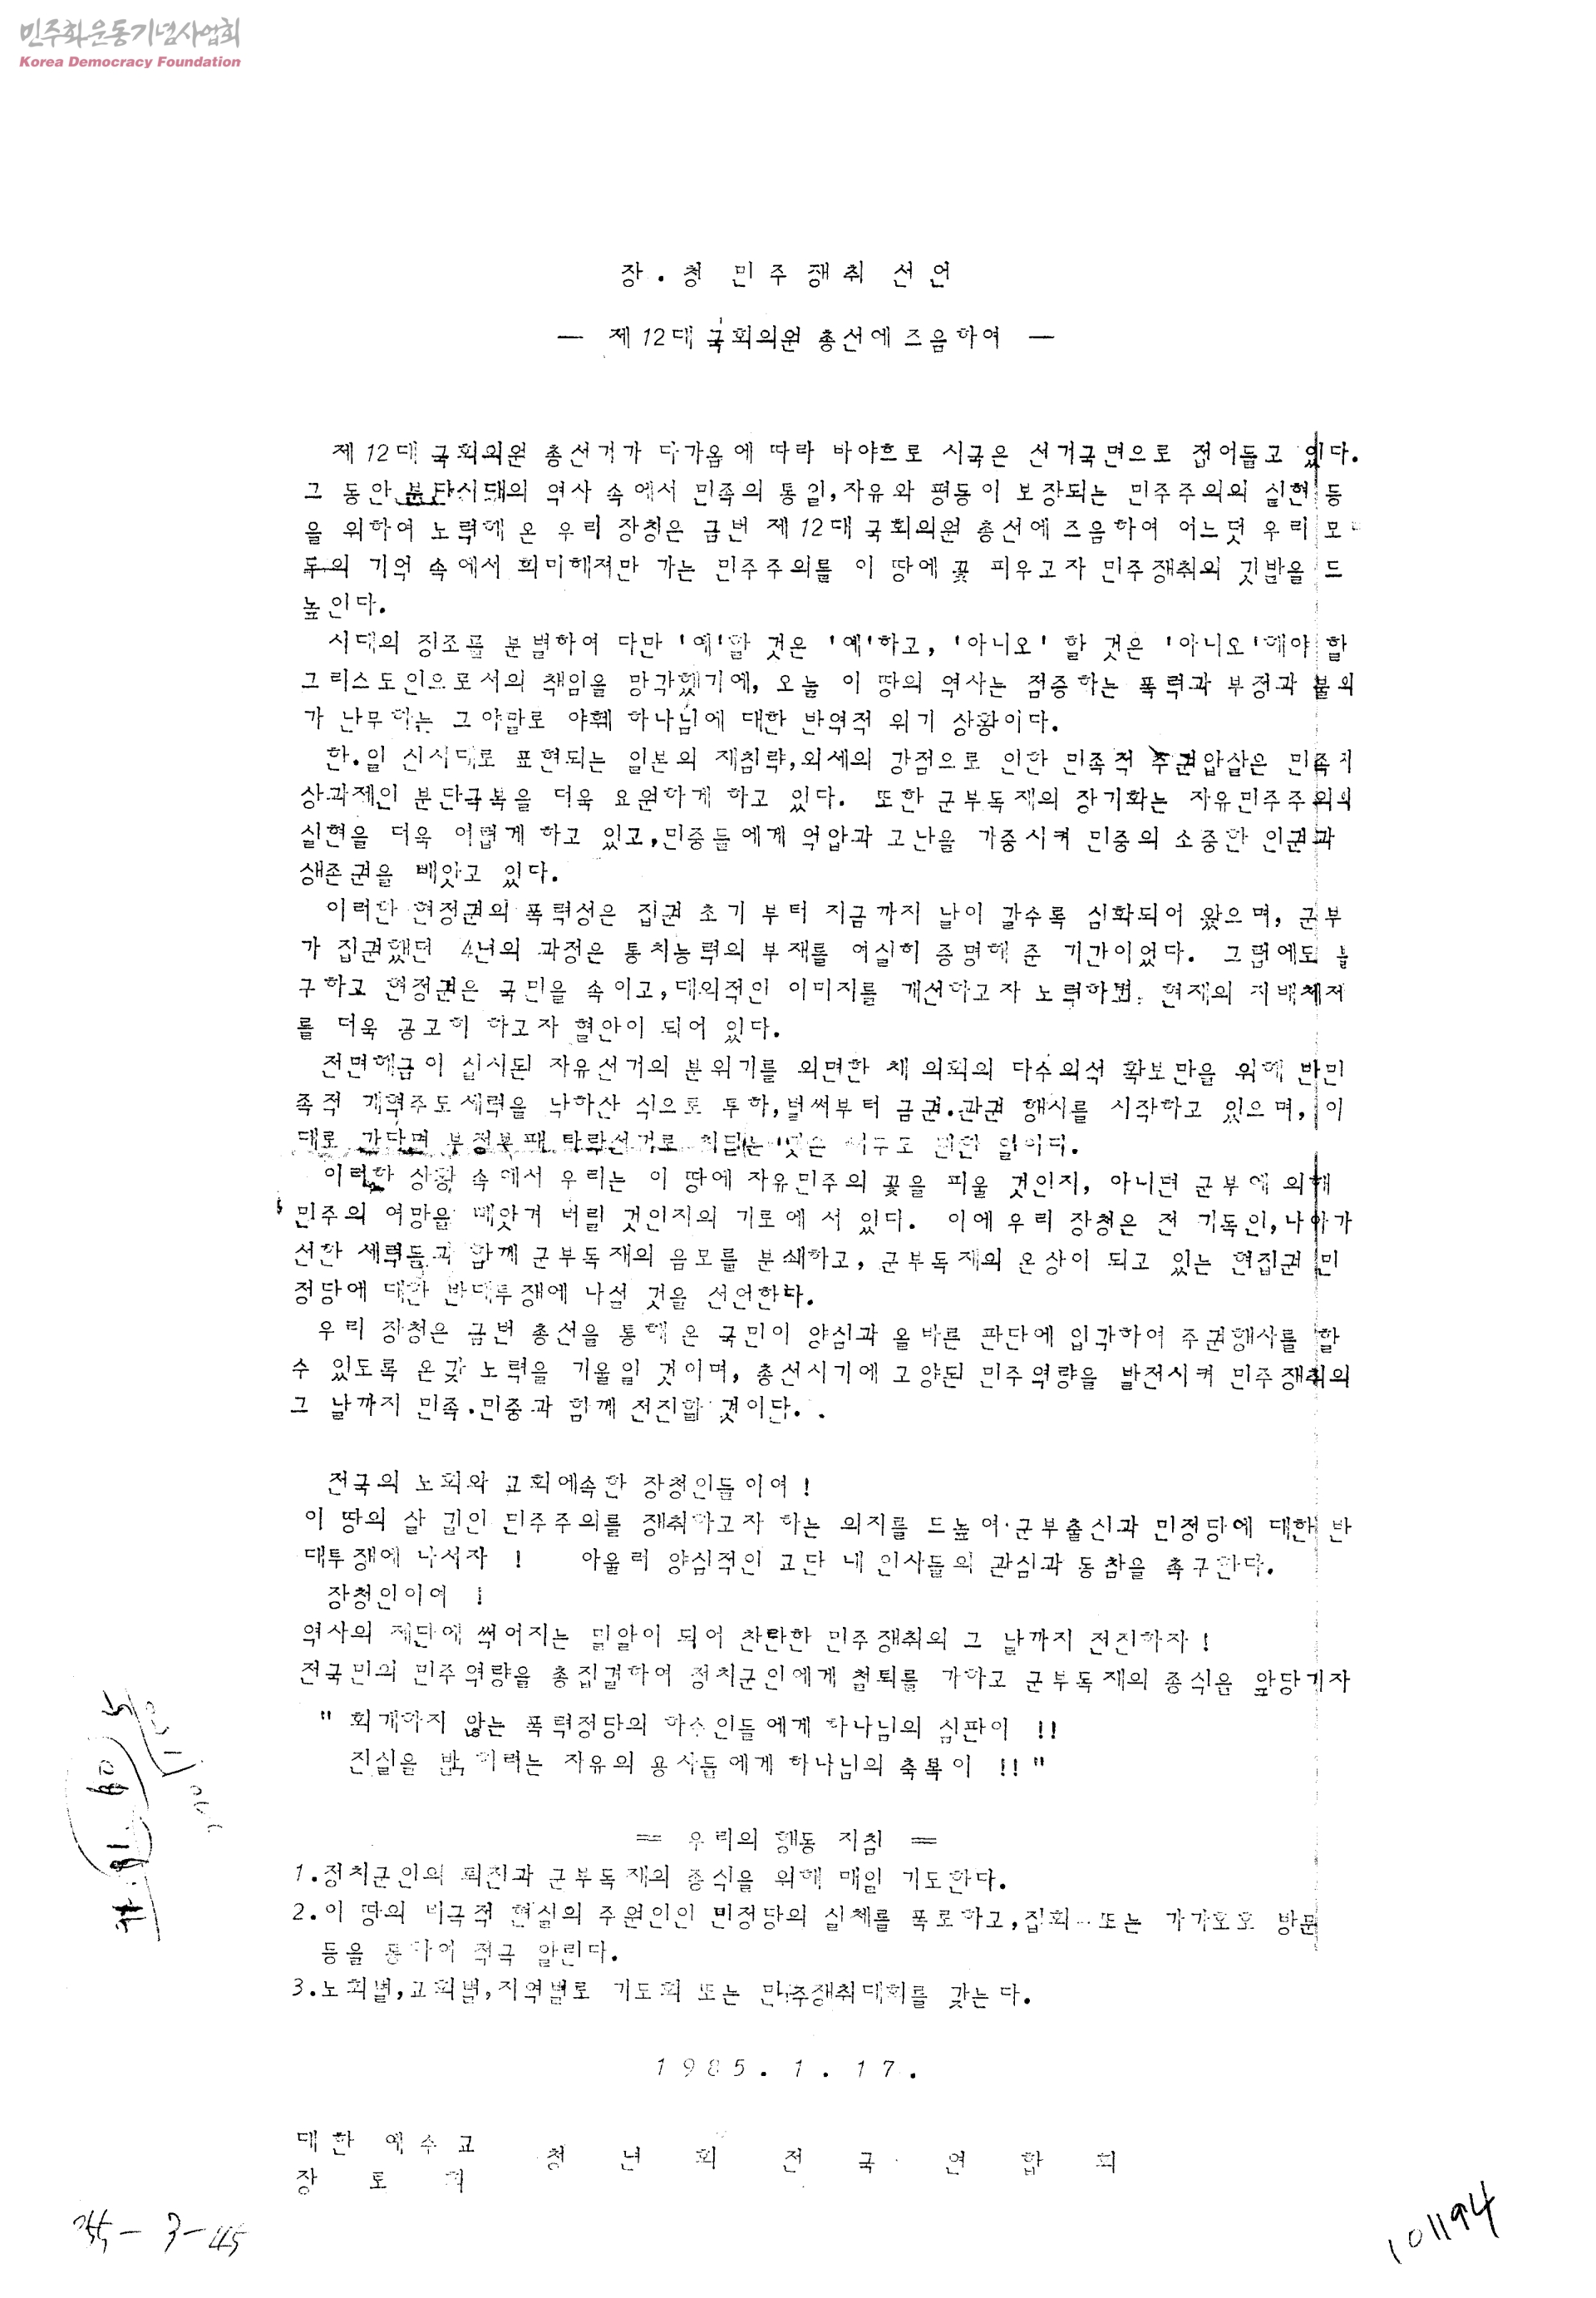 민주화운동기념사업회
Korea Democracy Foundation
장.청 민주쟁취 선언
— 제12대 국회의원 총선에즈음하여 —
제12대 국회의원 총선거가 다가옴에 따라 바야흐로 시국은 선거국면으로 접어들고 있다.
그 동안 분단시대의 역사 속에서 민족의 통일,자유와 평등이 보장되는 민주주의의 실현 등
을 위하여 노력해 온 우리 장청은 금번 제12대 국회의원 총선에즈음하여 어느덧 우리 모
두의 기억 속에서 희미해져만 가는 민주주의를 이 땅에 꽃 피우고자 민주쟁취의 깃발을 드
높인다.
시대의 징조를 분별하여 다만 '예'할 것은 '예'하고, '아니오' 할 것은 '아니오'해야 할
그리스도인으로서의 책임을 망각했기에, 오늘 이 땅의 역사는 점증하는 폭력과 부정과 불의
가 난무하는 그야말로 야훼 하나님에 대한 반역적 위기 상황이다.
한.일 신시대로 표현되는 일본의 재침략,외세의 강점으로 인한 민족적 주권압살은 민족지
상과제인 분단극복을 더욱 요원하게 하고 있다. 또한 군부독재의 장기화는 자유민주주의의
실현을 더욱 어렵게 하고 있고,민중들에게 억압과 고난을 가중시켜 민중의 소중한 인권과
생존권을 빼앗고 있다.
이러한 현정권의 폭력성은 집권 초기 부터 지금까지 날이 갈수록 심화되어 왔으며, 군부
가 집권했던 4년의 과정은 통치능력의 부재를 여실히 증명해 준 기간이었다. 그럼에도 불
구하고 현정권은 국민을 속이고,대외적인 이미지를 개선하고자 노력하고 현재의 지배체제
를 더욱 공고히 하고자 혈안이 되어 있다.
전면해금이 실시된 자유선거의 분위기를 외면한 채 의회의 다수의석 확보만을 위해 반민
족적 개혁주도세력을 낙하산 식으로 투하,벌써부터 금권.관권 행사를 시작하고 있으며, 이
대로 간다면 부정부패 타락선거로 치닫는 것은 너무도 뻔한 일이다.
이러한 상황 속에서 우리는 이 땅에 자유민주의 꽃을 피울 것인지, 아니면 군부에 의해
민주의 여망을 빼앗겨 버릴 것인지의 기로에 서 있다. 이에 우리 장청은 전 기독인,나아가
선한 세력들과 함께 군부독재의 음모를 분쇄하고, 군부독재의 온상이 되고 있는 현집권 민
정당에 대한 반대투쟁에 나설 것을 선언한다.
우리 장청은 금번 총선을 통해 온 국민이 양심과 올바른 판단에 입각하여 주권행사를 할
수 있도록 온갖 노력을 기울일 것이며, 총선시기에 고양된 민주역량을 발전시켜 민주쟁취의
그 날까지 민족.민중과 함께 전진할 것이다.
전국의 노회와 교회에속한 장청인들이여!
이 땅의 살 길인 민주주의를 쟁취하고자 하는 의지를 드높여 군부출신과 민정당에 대한 반
대투쟁에 나서자 ! 아울러 양심적인 교단 내 인사들의 관심과 동참을 촉구한다.
장청인이여 !
역사의 제단에 썩어지는 밀알이 되어 찬란한 민주쟁취의 그 날까지 전진하자!
전국민의 민주역량을 총집결하여 정치군인에게 철퇴를 가하고 군부독재의 종식을 앞당기자
" 회개하지 않는 폭력정당의 하수인들에게 하나님의 심판이 !!
진실을 밝히려는 자유의 용사들에게 하나님의 축복이 !! "
== 우리의 행동 지침 ==
1.정치군인의 퇴진과 군부독재의 종식을 위해 매일 기도한다.
2.이 땅의 비극적 현실의 주원인인 민정당의 실체를 폭로하고,집회 또는 가가호호 방문
등을 통하여 적극 알린다.
3.노회별,교회별,지역별로 기도회 또는 민주쟁취대회를 갖는다.
1985. 1. 17.
대한 예수교
장 로 회 청 년 회 전 국 연 합 회
3-45
101194